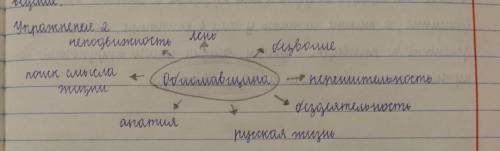 Упражнение 2
неподвижность
лень
безволие
поиск смысла
жизни
Обломовщина
нерешительность
бездеятельность
апатия
русская жизнь